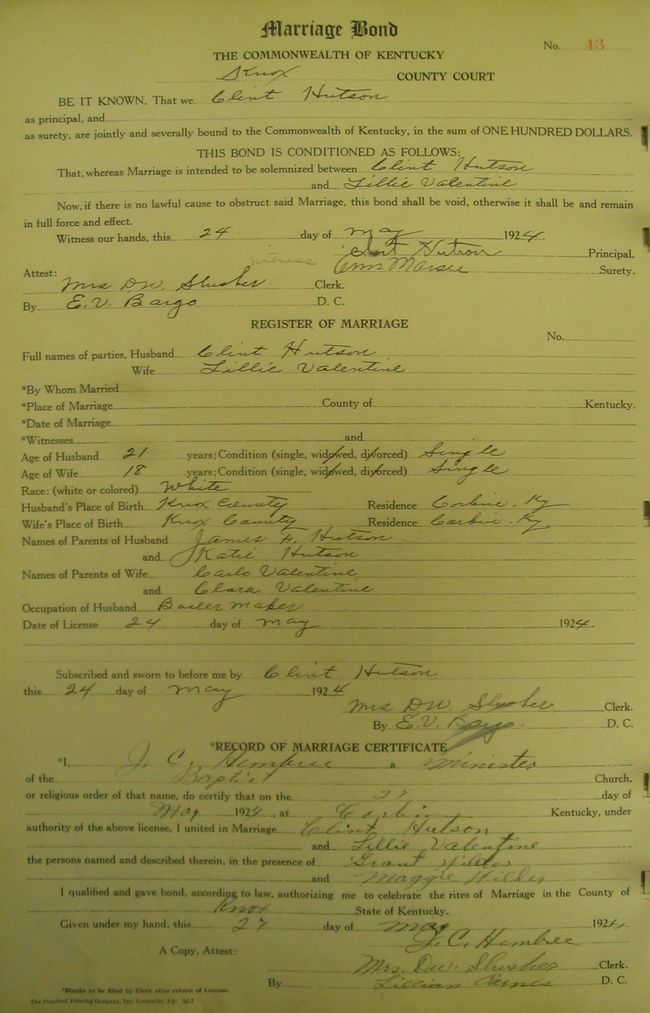 Marriage Bond
No. 43
THE COMMONWEALTH OF KENTUCKY
Knox COUNTY COURT
BE IT KNOWN, That we Clint Hutson
as principal, and
as surety, are jointly and severally bound to the Commonwealth of Kentucky, in the sum of ONE HUNDRED DOLLARS.
THIS BOND IS CONDITIONED AS FOLLOWS:
That, whereas Marriage is intended to be solemnized between Clint Hutson
and Lillie Valentine
Now, if there is no lawful cause to obstruct said Marriage, this bond shall be void, otherwise it shall be and remain
in full force and effect.
Witness our hands, this 24 day of May 1924.
witness Clint Hutson Principal.
Surety.
Attest:
Mrs DW. Slusher Clerk.
By E. V. Bargo D. C.
REGISTER OF MARRIAGE
No.
Full names of parties, Husband Clint Hutson
Wife Lillie Valentine
*By Whom Married
*Place of Marriage County of Kentucky.
*Date of Marriage
*Witnesses and
Age of Husband 21 years; Condition (single, widowed, divorced) Single
Age of Wife 18 years; Condition (single, widowed, divorced) Single
Race: (white or colored) White
Husband's Place of Birth Knox County Residence Corbin. Ky
Wife's Place of Birth Knox County Residence Corbin. Ky
Names of Parents of Husband James F. Hutson
and Katie Hutson
Names of Parents of Wife Carlo Valentine
and Clara Valentine
Occupation of Husband Boiler Maker
Date of License 24 day of May 1924.
Subscribed and sworn to before me by Clint Hutson
this 24 day of May 1924
Mrs DW. Slusher Clerk.
By E. V. Bargo D. C.
*RECORD OF MARRIAGE CERTIFICATE
*I, J. C. Hembree a Minister
of the Baptist Church,
or religious order of that name, do certify that on the 27 day of
May 1924, at Corbin Kentucky, under
authority of the above license, I united in Marriage Clint Hutson
and Lillie Valentine
the persons named and described therein, in the presence of Grant Wilder
and Maggie Wilder
I qualified and gave bond, according to law, authorizing me to celebrate the rites of Marriage in the County of
Knox State of Kentucky.
Given under my hand, this 27 day of May 1924
J. C. Hembree
A Copy, Attest:
Mrs. DW. Slusher Clerk.
By Lillian D. C.
*Blanks to be filled by Clerk after return of License.
The Standard Printing Company, Inc. Louisville, Ky. M-1